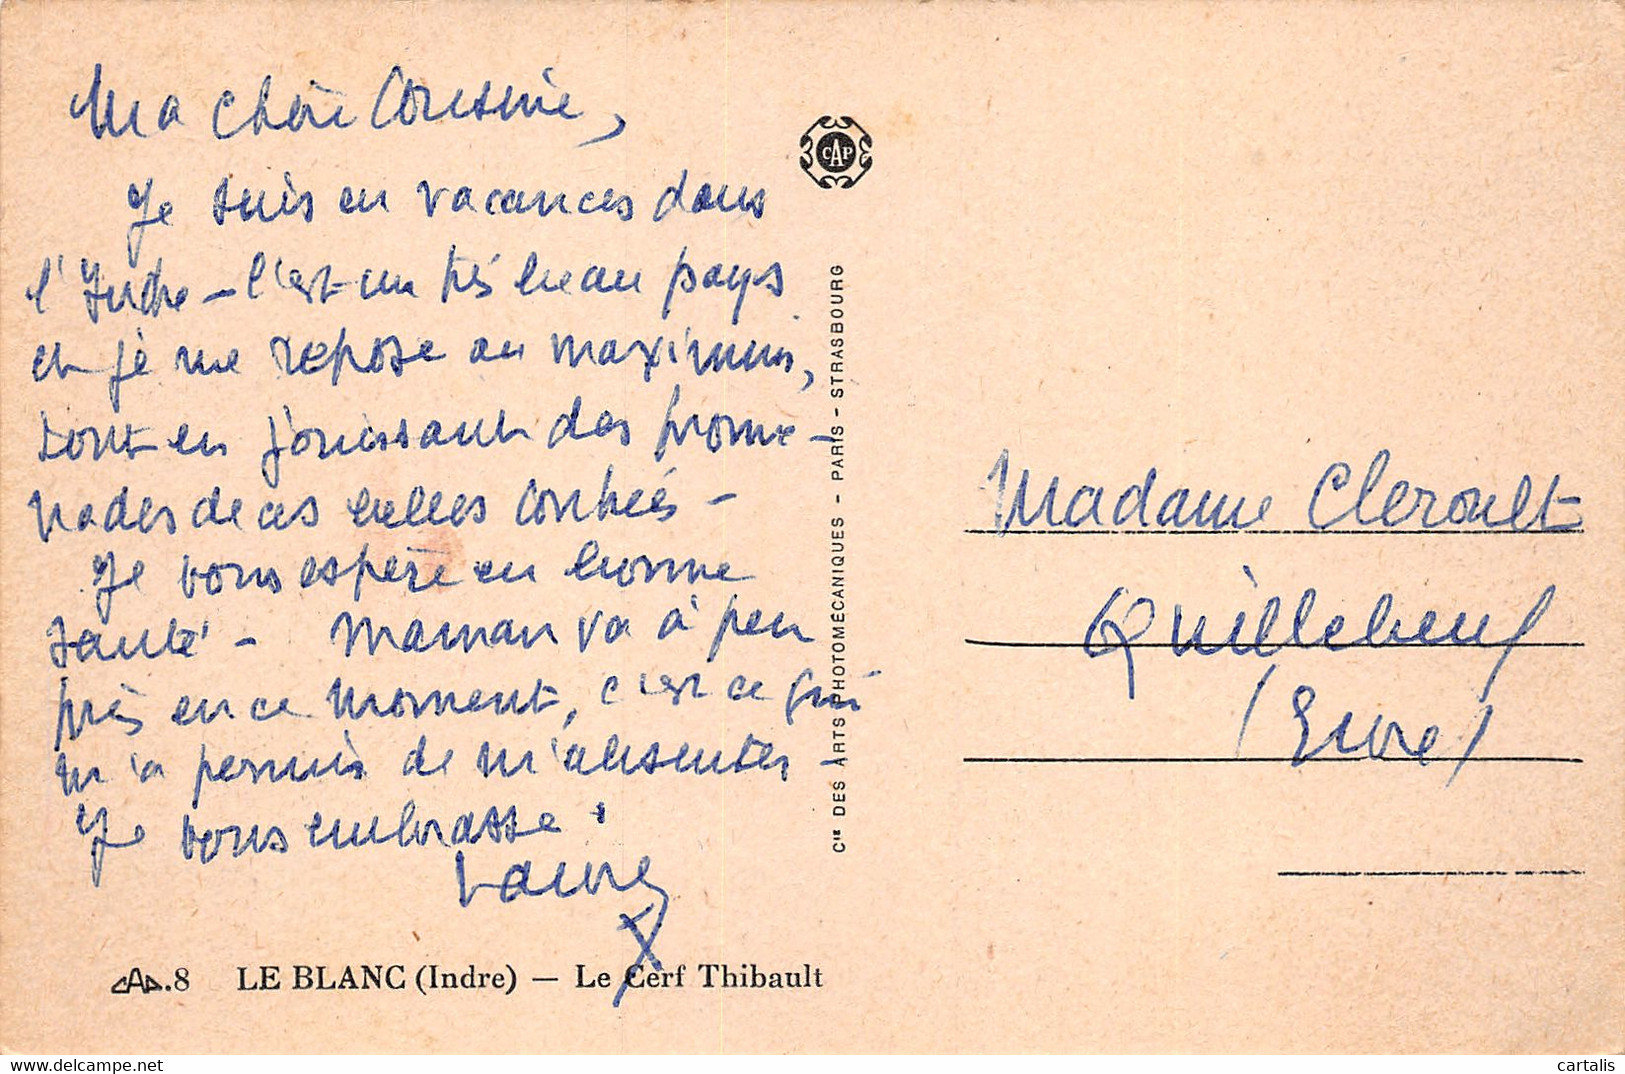 Ma chère Cousine,
Je suis en vacances dans
l'Indre - c'est un très beau pays
et je me repose au maximum,
tout en jouissant des prome-
nades de ces belles contrées -
Je vous espère en bonne
santé - Maman va à peu
près en ce moment, c'est ce qui
m'a permis de m'absenter -
Je vous embrasse.
CAP
Cie DES ARTS PHOTOMÉCANIQUES - PARIS - STRASBOURG
Madame Cleroult
Quillebeuf
(Eure)
CAP.8 LE BLANC (Indre) — Le Cerf Thibault
cartalis